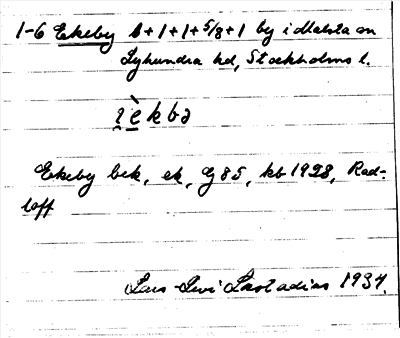 1-6 Ekeby 1+1+1+5/8+1 by i Malsta sn
Lyhundra hd, Stockholms l.
èkbə
Ekeby bek, ek, G 85, kb 1928, Rad-
loff
Lars Levi Læstadius 1934.